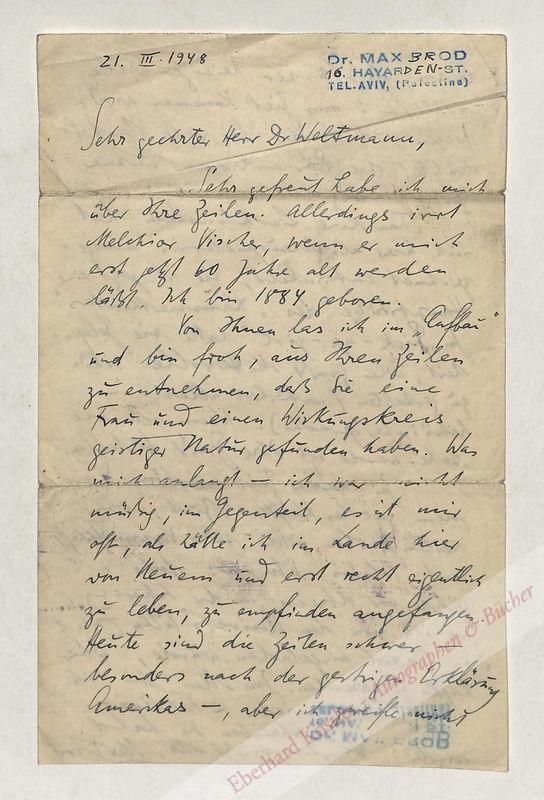 21. III. 1948
Dr. MAX BROD
16. HAYARDEN-ST.
TEL-AVIV, (Palestine)
Sehr geehrter Herr Dr Weltmann,
Sehr gefreut habe ich mich
über Ihre Zeilen. Allerdings irrt
Melchior Vischer, wenn er mich
erst jetzt 60 Jahre alt werden
läßt. Ich bin 1884 geboren.
Von Ihnen las ich im „Aufbau“
und bin froh, aus Ihren Zeilen
zu entnehmen, daß Sie eine
Frau und einen Wirkungskreis
geistiger Natur gefunden haben. Was
mich anlangt – ich war nicht
müßig, im Gegenteil, es ist mir
oft, als hätte ich im Lande hier
von Neuem und erst recht eigentlich
zu leben, zu empfinden angefangen.
Heute sind die Zeiten schwer –
besonders nach der gestrigen Erklärung
Amerikas –, aber ich zweifle nicht
Eberhard Autographen & Bücher